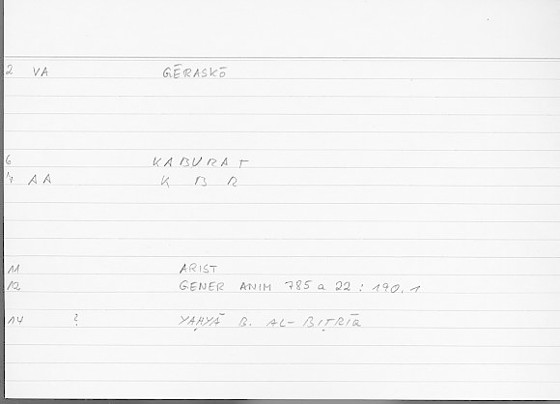 2 VA GĒRASKŌ
6 KABURAT
AA K B R
11 ARIST
12 GENER ANIM 785 a 22 : 190.1
14 ? YAḤYĀ B. AL-BIṬRĪQ